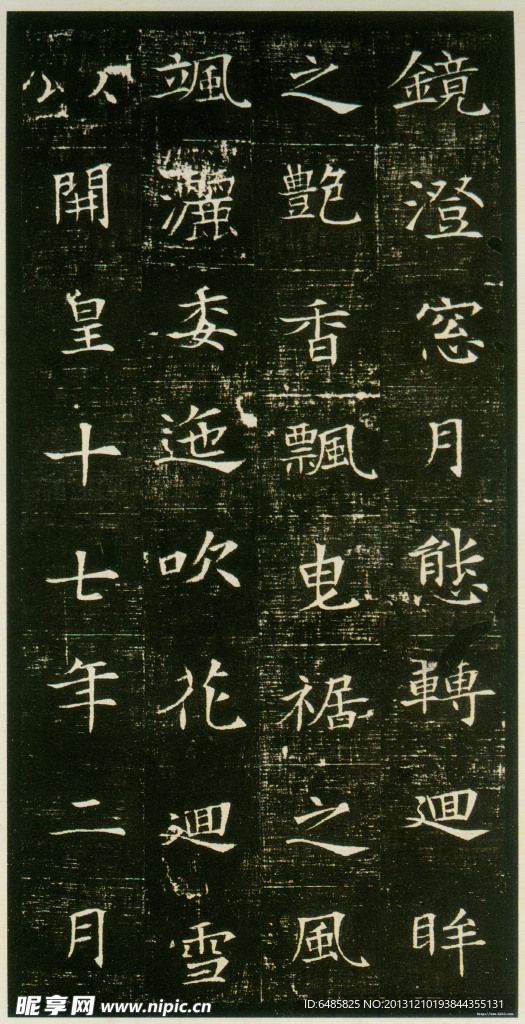 鏡澄窓月態轉迴眸
之艷香飄曳裾之風
颯灑委迤吹花迴雪
以開皇十七年二月
昵享网 www.nipic.cn
ID:6485825 NO:20131210193844355131